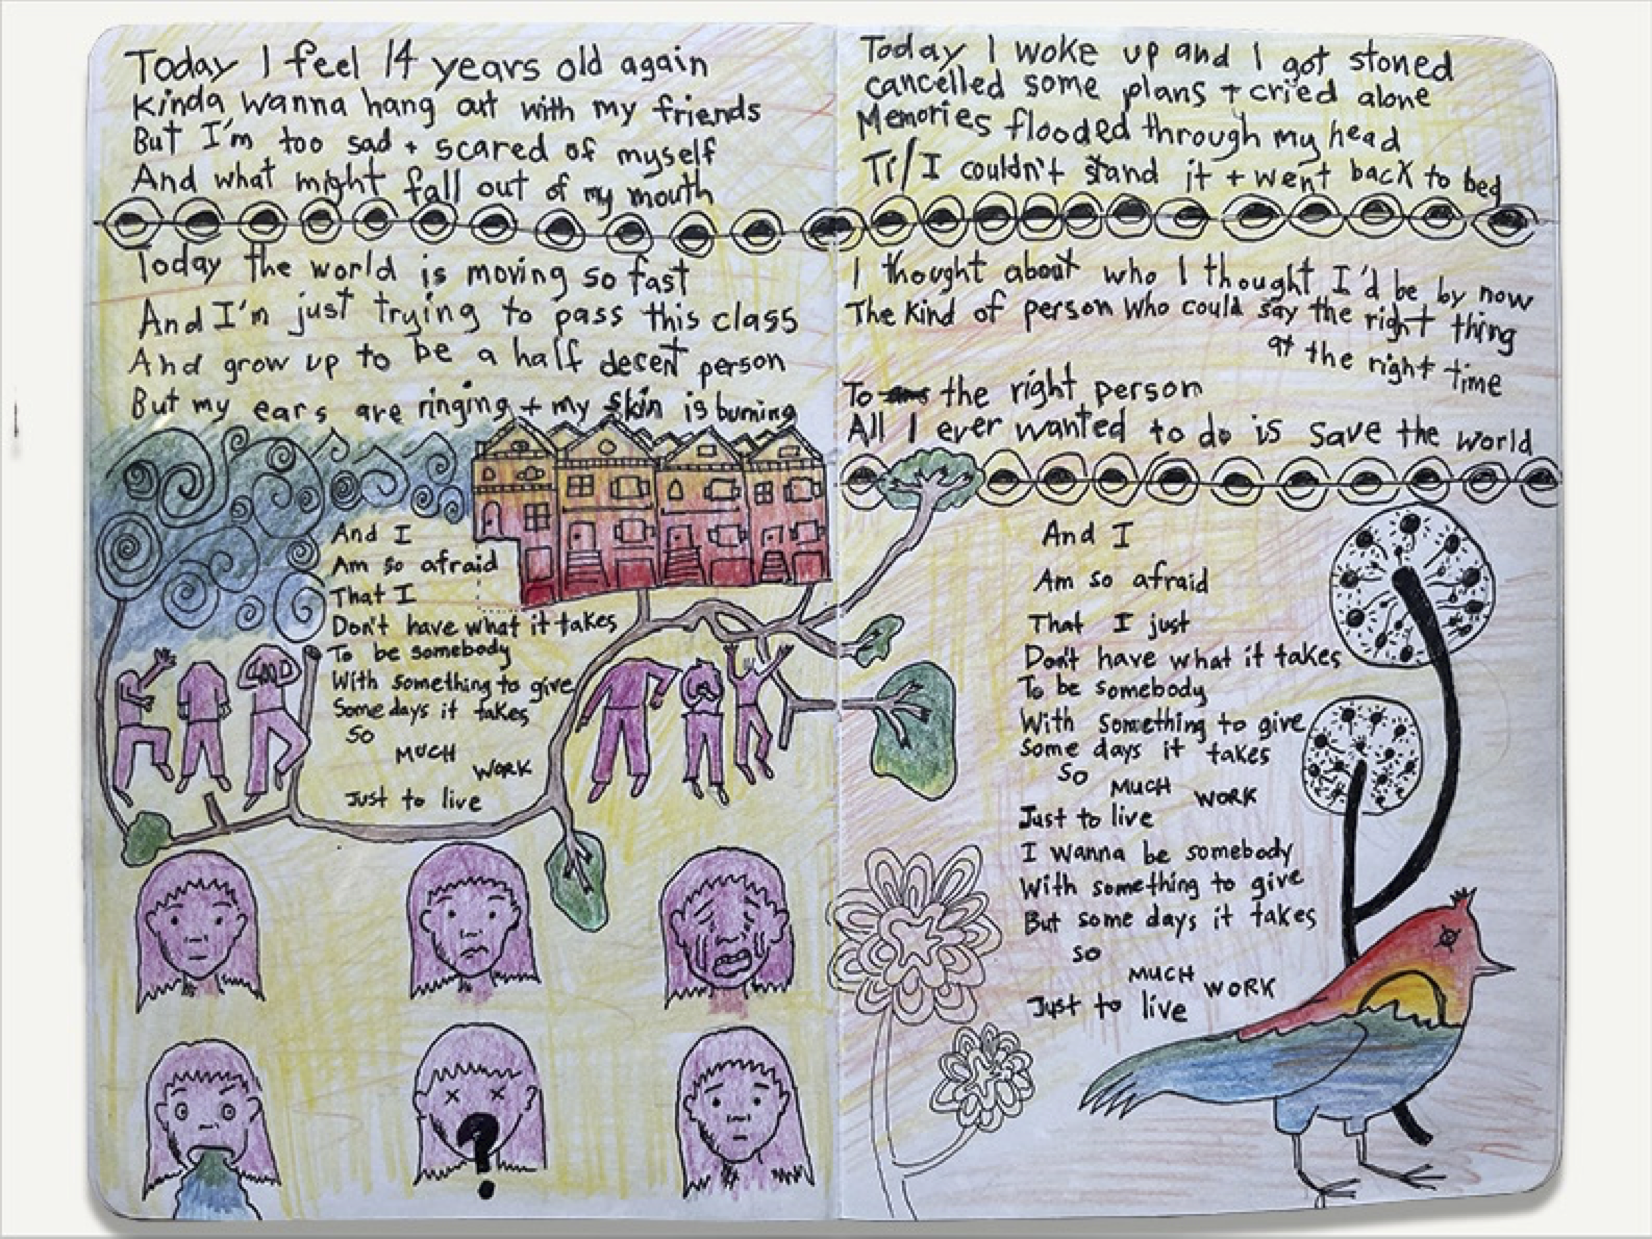 Today I feel 14 years old again
Kinda wanna hang out with my friends
But I'm too sad + scared of myself
And what might fall out of my mouth
Today the world is moving so fast
And I'm just trying to pass this class
And grow up to be a half decent person
But my ears are ringing + my skin is burning
And I
Am so afraid
That I
Don't have what it takes
To be somebody
With something to give
Some days it takes
So
MUCH
WORK
Just to live
?
Today I woke up and I got stoned
cancelled some plans + cried alone
Memories flooded through my head
Til I couldn't stand it + went back to bed
I thought about who I thought I'd be by now
The kind of person who could say the right thing
at the right time
To the right person
All I ever wanted to do is save the world
And I
Am so afraid
That I just
Don't have what it takes
To be somebody
With something to give
Some days it takes
So
MUCH
WORK
Just to live
I wanna be somebody
With something to give
But some days it takes
SO
MUCH
WORK
Just to live